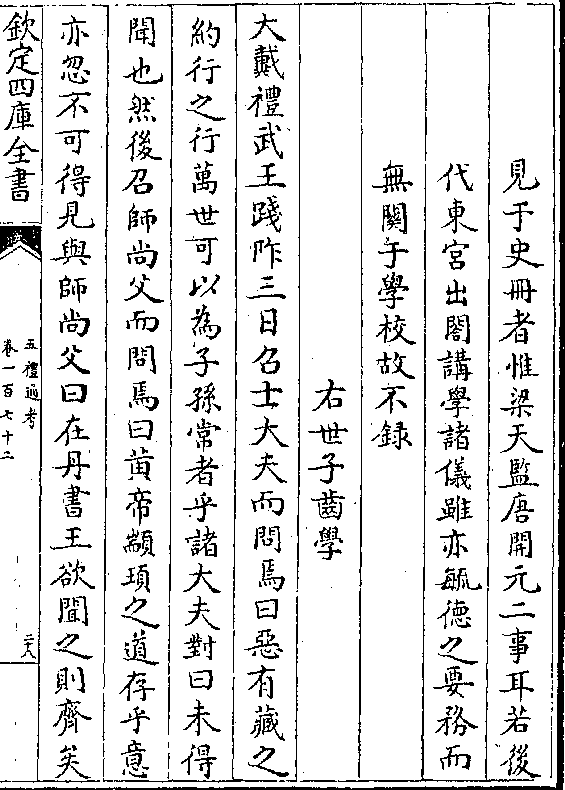 見于史冊者惟梁天監唐開元二事耳若後
代東宫出閣講學諸儀雖亦毓德之要務而
無關于學校故不録
右世子齒學
大戴禮武王踐阼三日召士大夫而問焉曰惡有藏之
約行之行萬世可以為子孫常者乎諸大夫對曰未得
聞也然後召師尚父而問焉曰黄帝顓頊之道存乎意
亦忽不可得見與師尚父曰在丹書王欲聞之則齊矣
欽定四庫全書
五禮通考
卷一百七十二
二十八